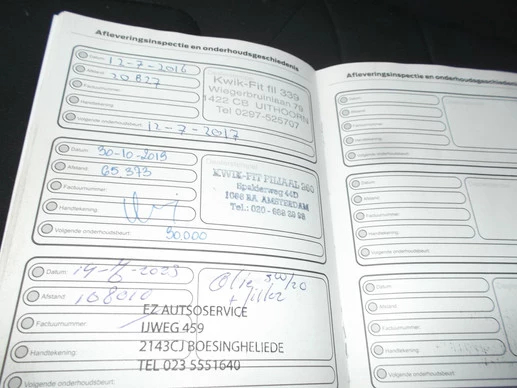 Afleveringsinspectie en onderhoudsgeschiedenis
Datum: 12-7-2016
Afstand: 20.827
Factuurnummer:
Handtekening:
Volgende onderhoudsbeurt: 12-7-2017
Kwik-Fit fil 339
Wiegerbruinlaan 79
1422 CB UITHOORN
Tel 0297-525707
Datum: 30-10-2019
Afstand: 65 373
Factuurnummer:
Handtekening:
Volgende onderhoudsbeurt: 90.000
KWIK-FIT FILIAAL 260
Spaklerweg 44D
AMSTERDAM
Tel.: 020 -
Datum:
Afstand:
Factuurnummer:
Handtekening:
Olie 5W/30
+ filter
EZ AUTSOSERVICE
IJWEG 459
2143CJ BOESINGHELIEDE
TEL 023 5551640
Afleveringsinspectie en onderhoudsgeschiedenis
Datum:
Afstand:
Factuurnummer:
Handtekening:
Volgende onderhoudsbeurt:
Datum:
Afstand:
Factuurnummer:
Handtekening:
Volgende onderhoudsbeurt:
Datum:
Afstand:
Factuurnummer:
Handtekening: